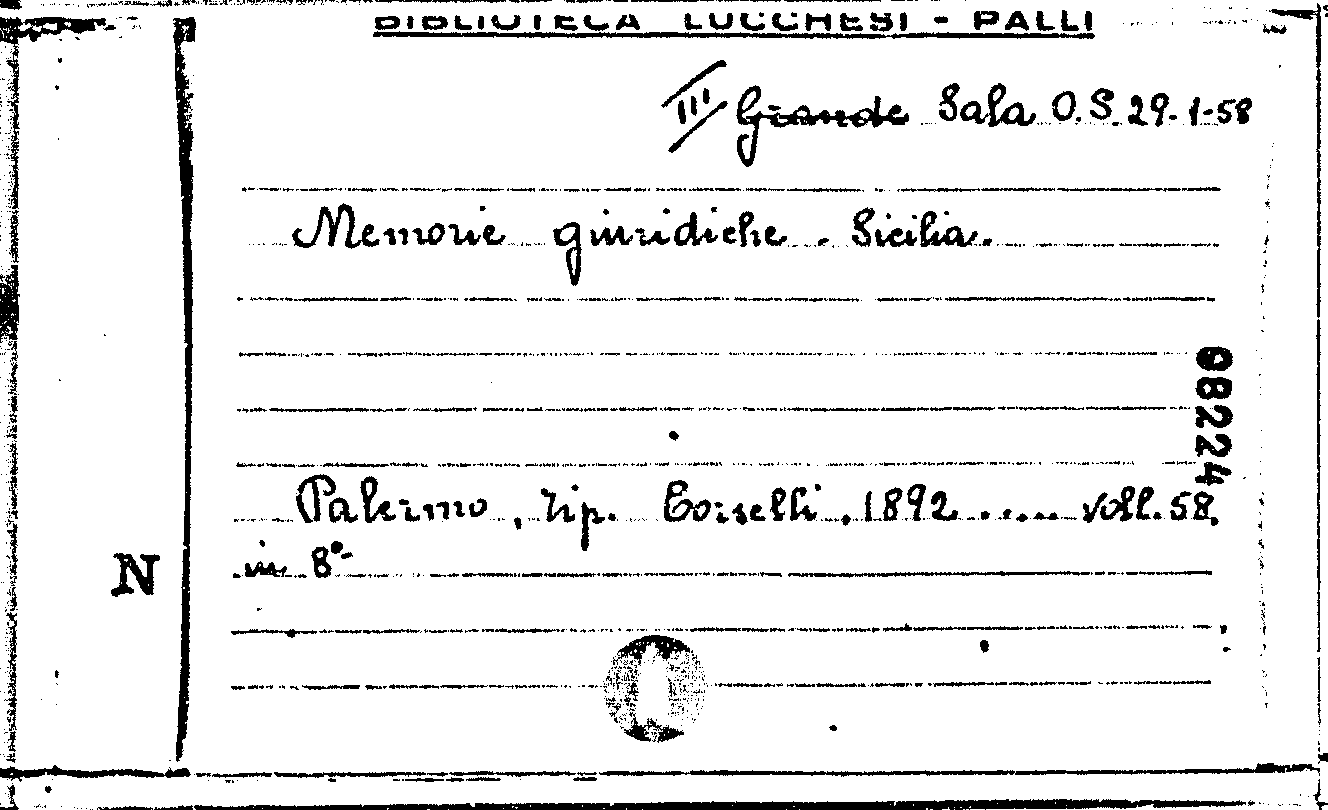 BIBLIOTECA LUCCHESI - PALLI
III Grande Sala O.S. 29-1-58
Memorie giuridiche. Sicilia.
08224
Palermo, tip. Corselli, 1892 ..... voll. 58,
in 8°-
N